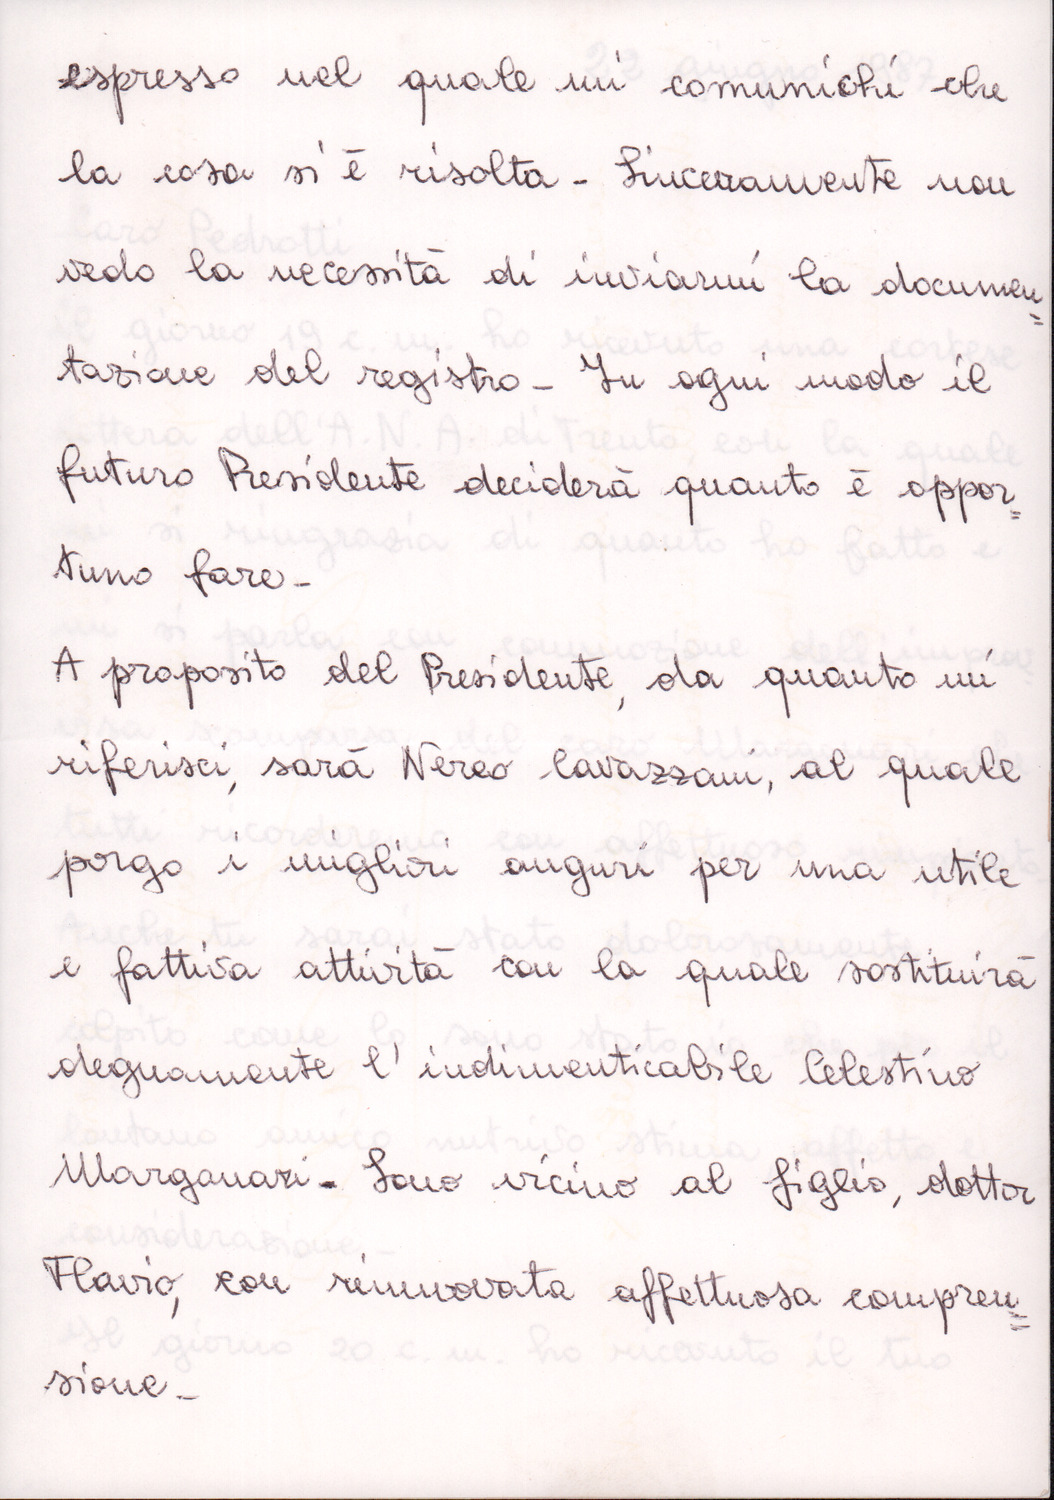 espresso nel quale mi comunichi che
la cosa si è risolta - Sinceramente non
vedo la necessità di inviarmi la documen=
tazione del registro - In ogni modo il
futuro Presidente deciderà quanto è oppor=
tuno fare -
A proposito del Presidente, da quanto mi
riferisci, sarà Nereo Cavazzani, al quale
porgo i migliori auguri per una utile
e fattiva attività con la quale sostituirà
degnamente l'indimenticabile Celestino
Marganari - Sono vicino al figlio, dottor
Flavio, con rinnovata affettuosa compren=
sione -